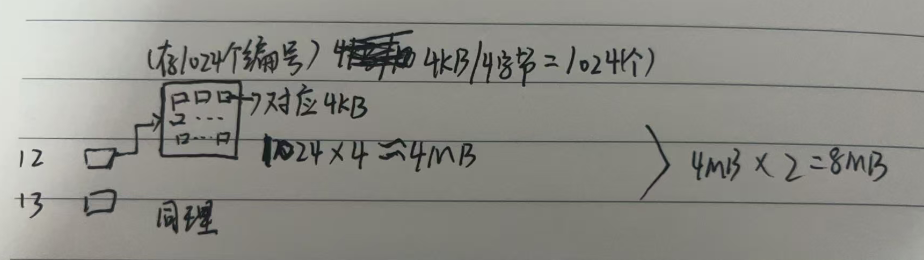 (存1024个编号) 4KB/4字节=1024个)
→对应4KB
12
1024×4≈4MB
4MB×2=8MB
13
同理